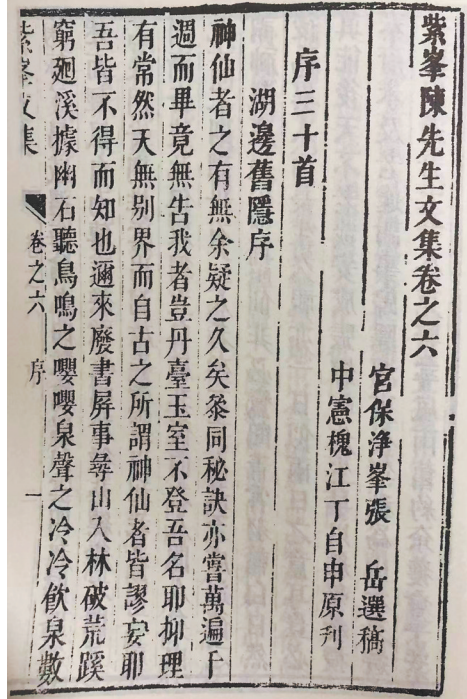 紫峯陳先生文集卷之六
官保淨峯張　岳選稿
中憲槐江丁自申原刋
序三十首
湖邊舊隱序
神仙者之有無余疑之久矣叅同秘訣亦嘗萬遍千
週而畢竟無告我者豈丹臺玉室不登吾名耶抑理
有常然天無别界而自古之所謂神仙者皆謬妄耶
吾皆不得而知也邇來廢書屏事尋山入林破荒蹊
窮廻溪據幽石聽鳥鳴之嚶嚶泉聲之冷冷飲泉數
紫峯文集　卷之六　序　一